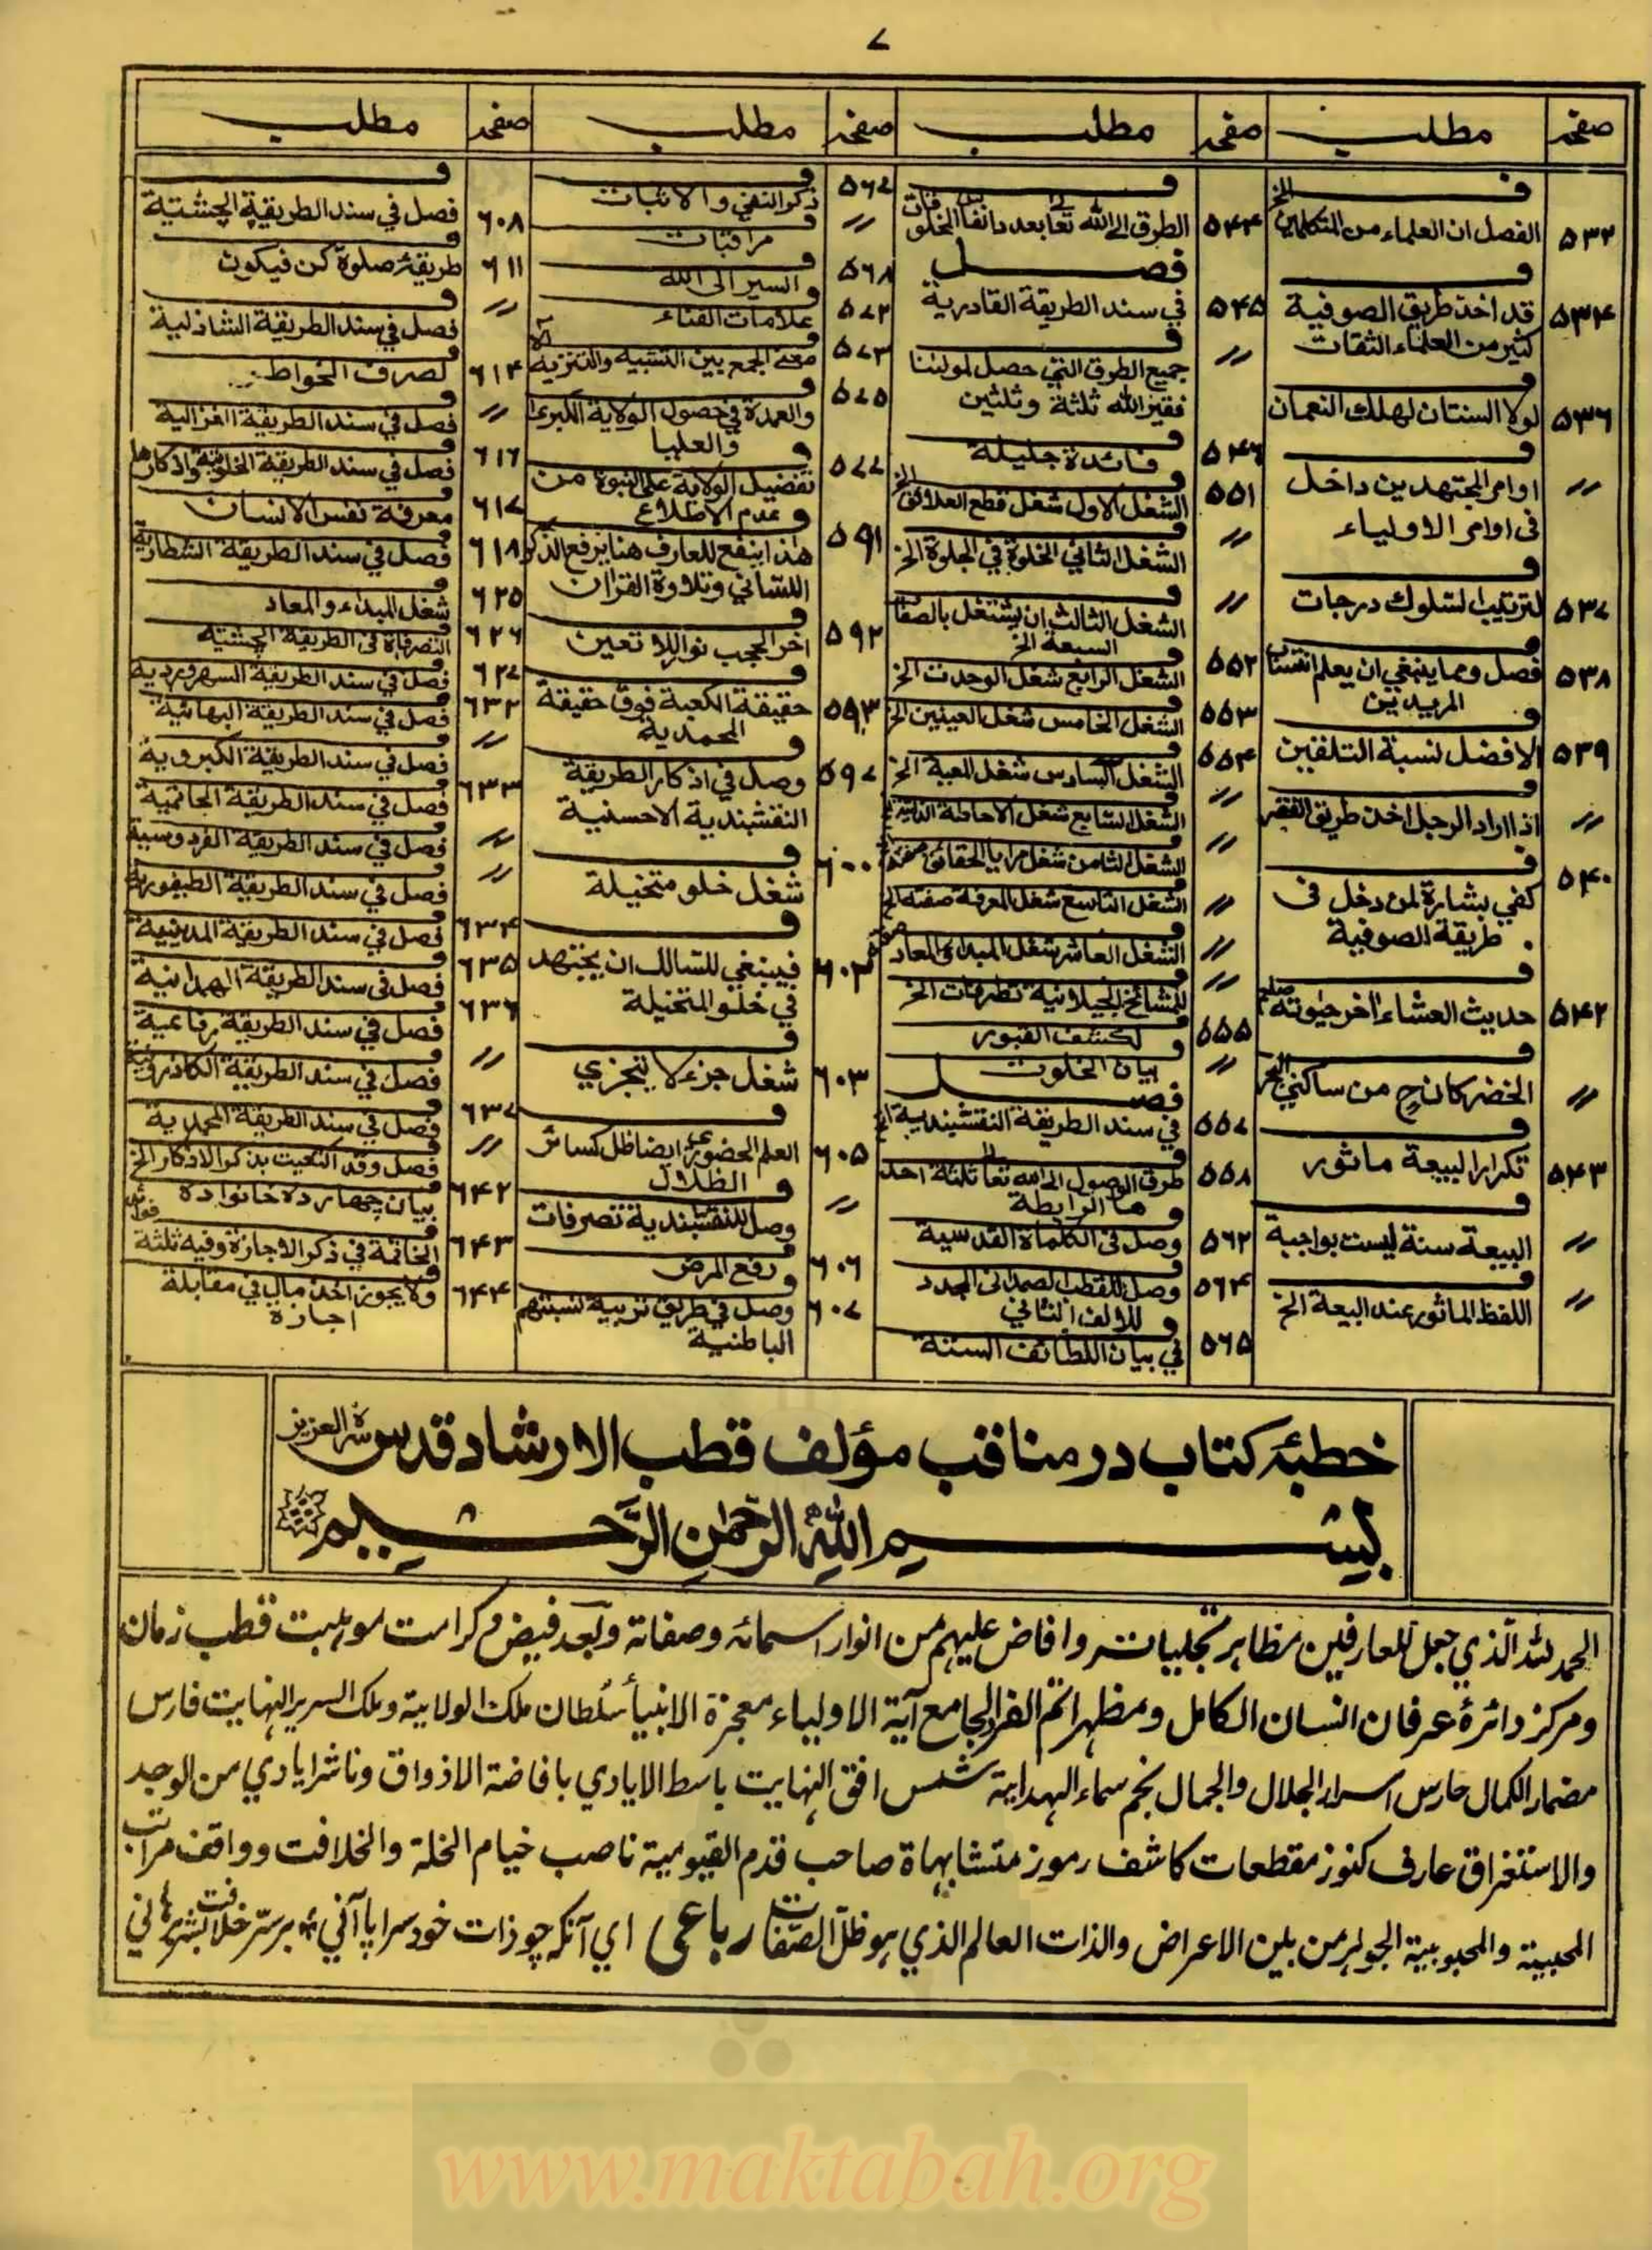 ٧
صفحه مطلب
٥٣٢ الفصل ان العلماء من المتكلمين الخ
٥٣٤ قد اخذ طريق الصوفية
كثير من العلماء الثقات
٥٣٦ لولا السنتان لهلك النعمان
〃 اوامر المجتهدين داخل
فى اوامر الاولياء
٥٣٧ لترتيب السلوك درجات
٥٣٨ فصل ومما ينبغي ان يعلم
المريدين
٥٣٩ الافضل نسبة التلقين
〃 اذا اراد الرجل اخذ طريق الفقر
٥٤٠ كفي بشارة لمن دخل فى
طريقة الصوفية
٥٤٢ حديث العشاء اخر حيوته صلعم
〃 الخضر كان ح من ساكني البحر
٥٤٣ تكرار البيعة ماثور
〃 البيعة سنة ليست بواجبة
〃 اللفظ الماثور عند البيعة الخ
صفحه مطلب
٥٤٤ الطرق الى الله تعا بعدد انفاس المخلوقات
فصل
٥٤٥ في سند الطريقة القادرية
〃 جميع الطرق التي حصل لمولنا
فقير الله ثلثة وثلثين
٥٤٦ فائدة جليلة
٥٥١ الشغل الاول شغل قطع العلائق الخ
〃 الشغل الثاني الخلوة في الجلوة الخ
〃 الشغل الثالث ان يشتغل بالصفات
السبعة الخ
٥٥٢ الشغل الرابع شغل الوحدت الخ
٥٥٣ الشغل الخامس شغل العينين الخ
٥٥٤ الشغل السادس شغل المعية الخ
〃 الشغل السابع شغل الاحاطة
〃 الشغل الثامن شغل مرايا الحقائق
〃 الشغل التاسع شغل المعرفة صفته الخ
〃 الشغل العاشر شغل المبداء والمعاد
〃 للمشائخ الجيلانية تصرفات الخ
٥٥٥ لكشف القبور
〃 بيان الخلوت
فصل
٥٥٧ في سند الطريقة النقشبندية الخ
٥٥٨ طرق الوصول الى الله تعا ثلثة احد
ها الرابطة
٥٦٢ وصل فى الكلماة القدسية
٥٦٤ وصل للقطب الصمدانى المجدد
للالف الثاني
٥٦٥ في بيان اللطائف الستة
صفحه مطلب
٥٦٧ ذكر النفي والاثبات
〃 مراقبات
٥٦٨ السير الى الله
٥٧٢ علامات الفناء
٥٧٣ معنى الجمع بين التشبيه والتنزيه
٥٧٥ والعمدة في حصول الولاية الكبرى
والعليا
٥٧٧ تفضيل الولاية على النبوة من
عدم الاطلاع
٥٩١ هذا ينفع للعارف هنا يرفع الذكر
اللساني وتلاوة القران
٥٩٢ اخر الحجب نور اللا تعين
٥٩٣ حقيقة الكعبة فوق حقيقة
المحمدية
٥٩٧ وصل في اذكار الطريقة
النقشبندية الاحسنية
٦٠٠ شغل خلو متخيلة
٦٠٢ فينبغي للسالك ان يجتهد
في خلو المتخيلة
٦٠٣ شغل جزء لا يتجزي
٦٠٥ العلم الحضوري ايضا ظل كسائر
الظلال
〃 وصل للنقشبندية تصرفات
٦٠٦ رفع المرض
٦٠٧ وصل في طريق تربية نسبتهم
الباطنية
صفحه مطلب
٦٠٨ فصل في سند الطريقة الچشتية
٦١١ طريقۀ صلوة كن فيكون
〃 فصل في سند الطريقة الشاذلية
٦١٤ لصرف الخواطر
〃 فصل في سند الطريقة الغزالية
٦١٦ فصل في سند الطريقة الخلوتية واذكارها
٦١٧ معرفة نفس الانسان
٦١٨ فصل في سند الطريقة الشطارية
٦٢٥ شغل المبداء والمعاد
٦٢٦ التصرفاة فى الطريقة الچشتية
٦٢٧ فصل في سند الطريقة السهروردية
٦٣٢ فصل في سند الطريقة البهائية
〃 فصل في سند الطريقة الكبروية
٦٣٣ فصل في سند الطريقة الحاتمية
〃 فصل في سند الطريقة الفردوسية
〃 فصل في سند الطريقة الطيفورية
٦٣٤ فصل في سند الطريقة المدينية
٦٣٥ فصل فى سند الطريقة الهمدانية
٦٣٦ فصل في سند الطريقة رفاعية
〃 فصل في سند الطريقة الكاذرونية
٦٣٧ فصل في سند الطريقة المحمدية
〃 فصل وقد انكحيت بذكر الاذكار الخ
٦٤٢ بيان چهارده خانواده
٦٤٣ الخاتمة في ذكر الاجازة وفيه ثلثة فوائد
٦٤٤ ولا يجوز اخذ مال في مقابلة
اجازة
خطبۂ كتاب در مناقب مؤلف قطب الارشاد قدس سره العزيز
بسم الله الرحمن الرحيم
الحمد لله الذي جعل للعارفين مظاهر تجليات وافاض عليهم من انوار اسمائه وصفاته وبعد فيض و كرامت موهبت قطب زمان
ومركز دائرۀ عرفان انسان الكامل ومظهر اتم الفرد الجامع آية الاولياء معجزة الانبيا سلطان ملك الولاية وملك السرير النهايت فارس
مضمار الكمال حارس اسرار الجلال والجمال نجم سماء الهداية شمس افق النهايت باسط الايادي بافاضة الاذواق وناشر ايادي من الوجد
والاستغراق عارف كنوز مقطعات كاشف رموز متشابهاة صاحب قدم القيومية ناصب خيام الخلة والخلافت وواقف مراتب
المحبية والمحبوبية الجوهر من بين الاعراض والذات العالم الذي هو ظل الصفات رباعى اي آنكه چو ذات خود سراپا آنى بر سر خلافت بشرها
www.maktabah.org